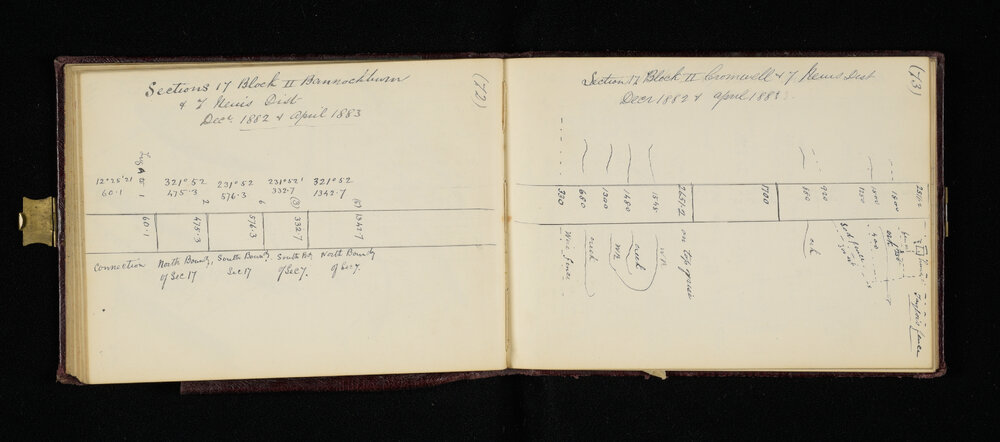 (72)
Sections 17 Block II Bannockburn
& 7 Nevis Dist
Decr 1882 & April 1883
12°25'21
60.1
321°52
475.3
231°52
576.3
231°52'
332.7
321°52
1342.7
2
6
(3)
(5)
60.1
475.3
576.3
332.7
1342.7
Connection
North Boundy
of Sec 17
South Boundy
Sec 17
South Bdy
of Sec 7.
North Boundy
of Sec 7.
(73)
Section 17 Block II Cromwell & 7 Nevis Dist
Decr 1882 & April 1883
320
680
1300
1480
1545
2651.2
1700
880
920
1250
1500
1800
Wire fence
creek
creek
on top of spur
creek
Taylor's fence